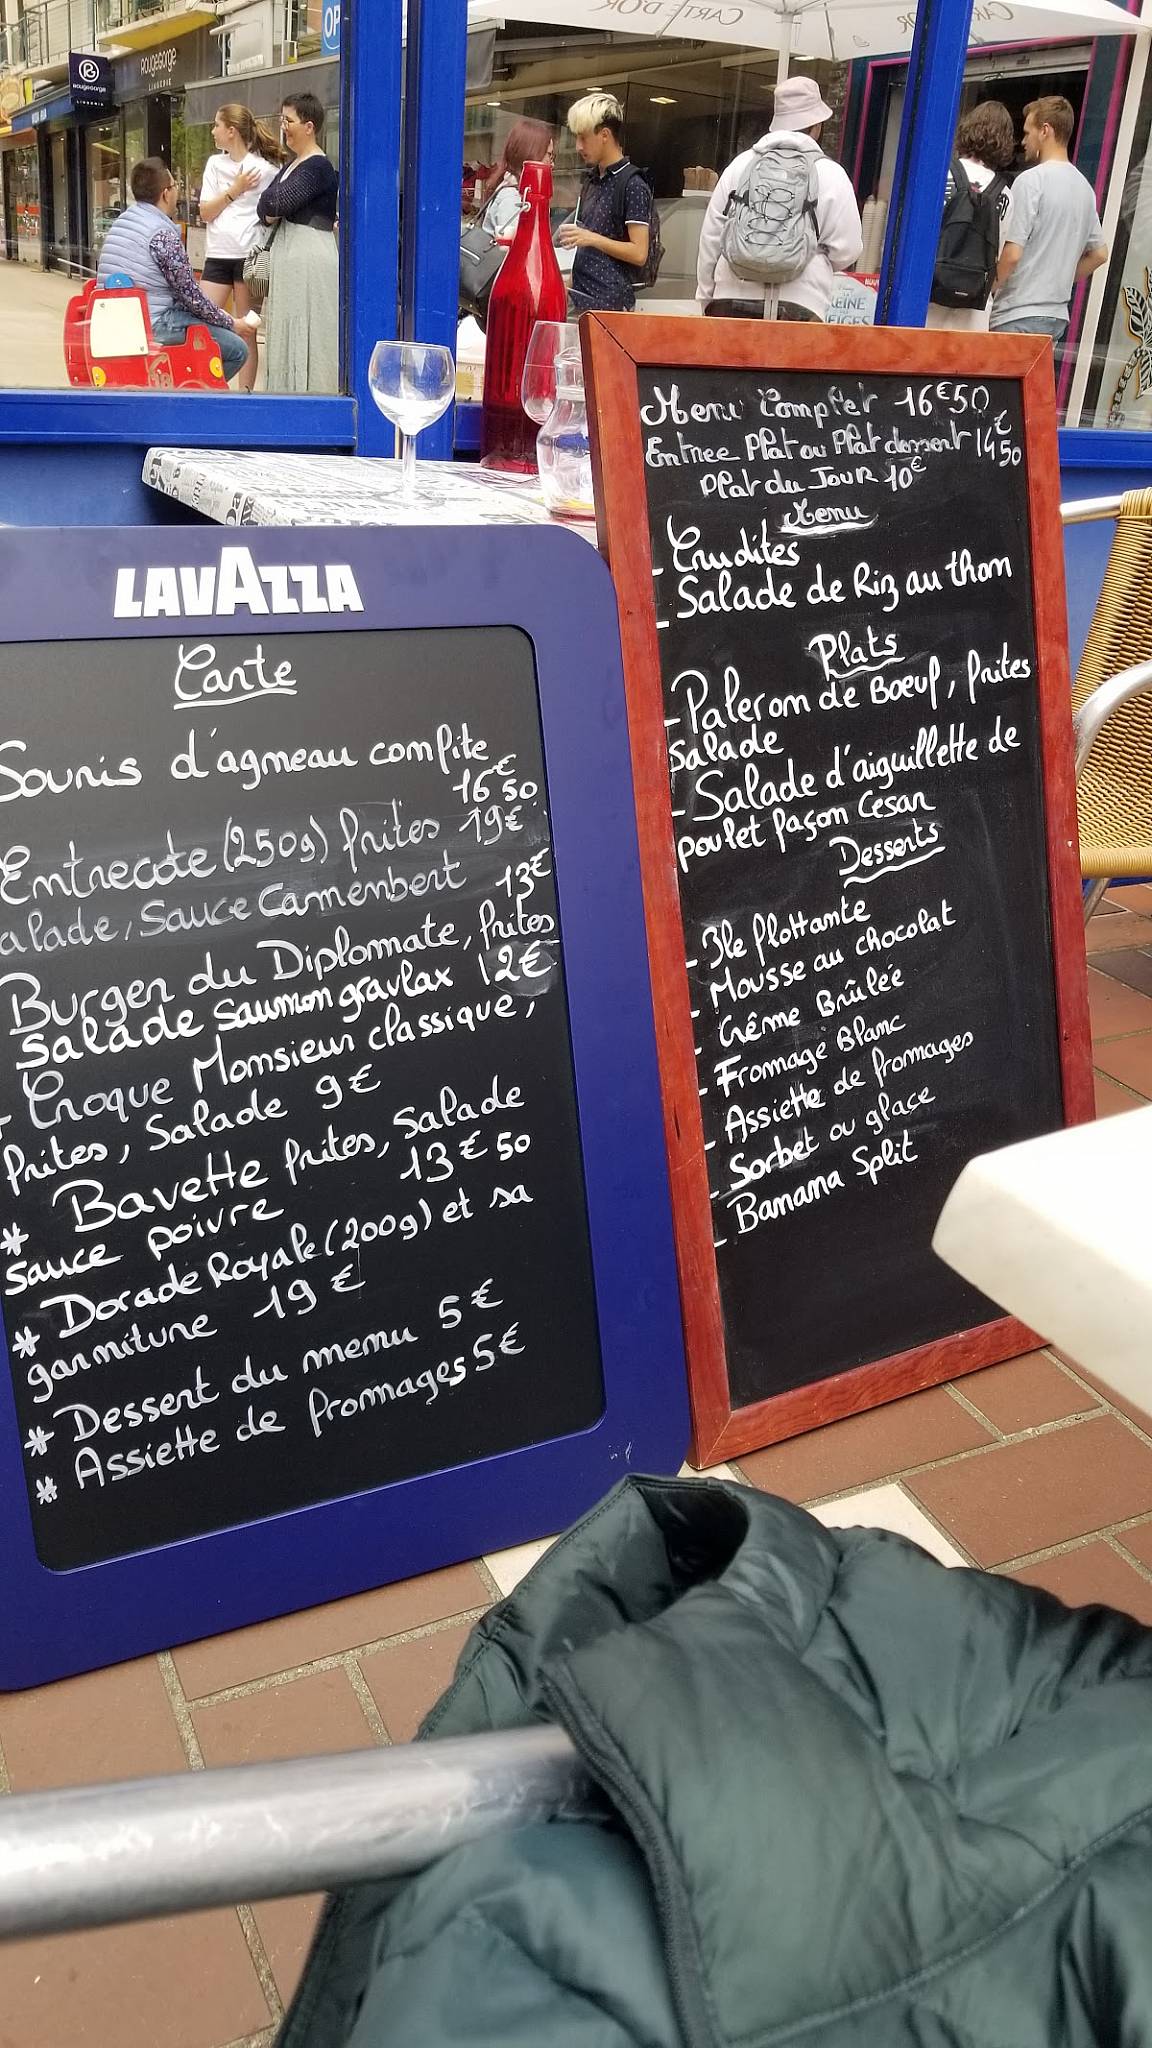 ROUGEGORGE
LINGERIE
ROUGEGORGE
LINGERIE
OP
CARTE D'OR
CARTE D'OR
REINE
NEIGES
LAVAZZA
Carte
Souris d'agneau confite
16€50
Entrecote (250g) frites 19€
alade, Sauce Camembert
Burger du Diplomate, frites 13€
Salade saumon gravlax 12€
- Croque Monsieur classique,
frites, Salade 9€
* Bavette frites, salade
sauce poivre 13€50
* Dorade Royale (200g) et sa
garniture 19€
* Dessert du menu 5€
* Assiette de fromages 5€
Menu Complet 16€50
Entree Plat ou Plat dessert 14€50
Plat du Jour 10€
Menu
- Crudites
- Salade de Riz au thon
Plats
- Paleron de Boeuf, frites
Salade
- Salade d'aiguillette de
poulet façon Cesar
Desserts
- Ile flottante
- Mousse au chocolat
- Crême Brûlée
- Fromage Blanc
- Assiette de fromages
- Sorbet ou glace
- Banana Split